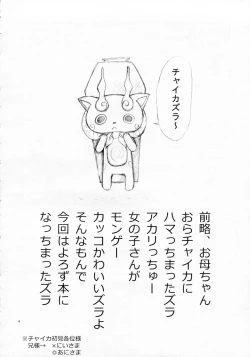 チャイカズラ〜
前略、お母ちゃん
おらチャイカに
ハマっちまったズラ
アカリっちゅー
女の子さんが
モンゲー
カッコかわいいズラよ
そんなもんで
今回はよろず本に
なっちまったズラ
※チャイカ初見各位様
兄様→ ×にいさま
○あにさま